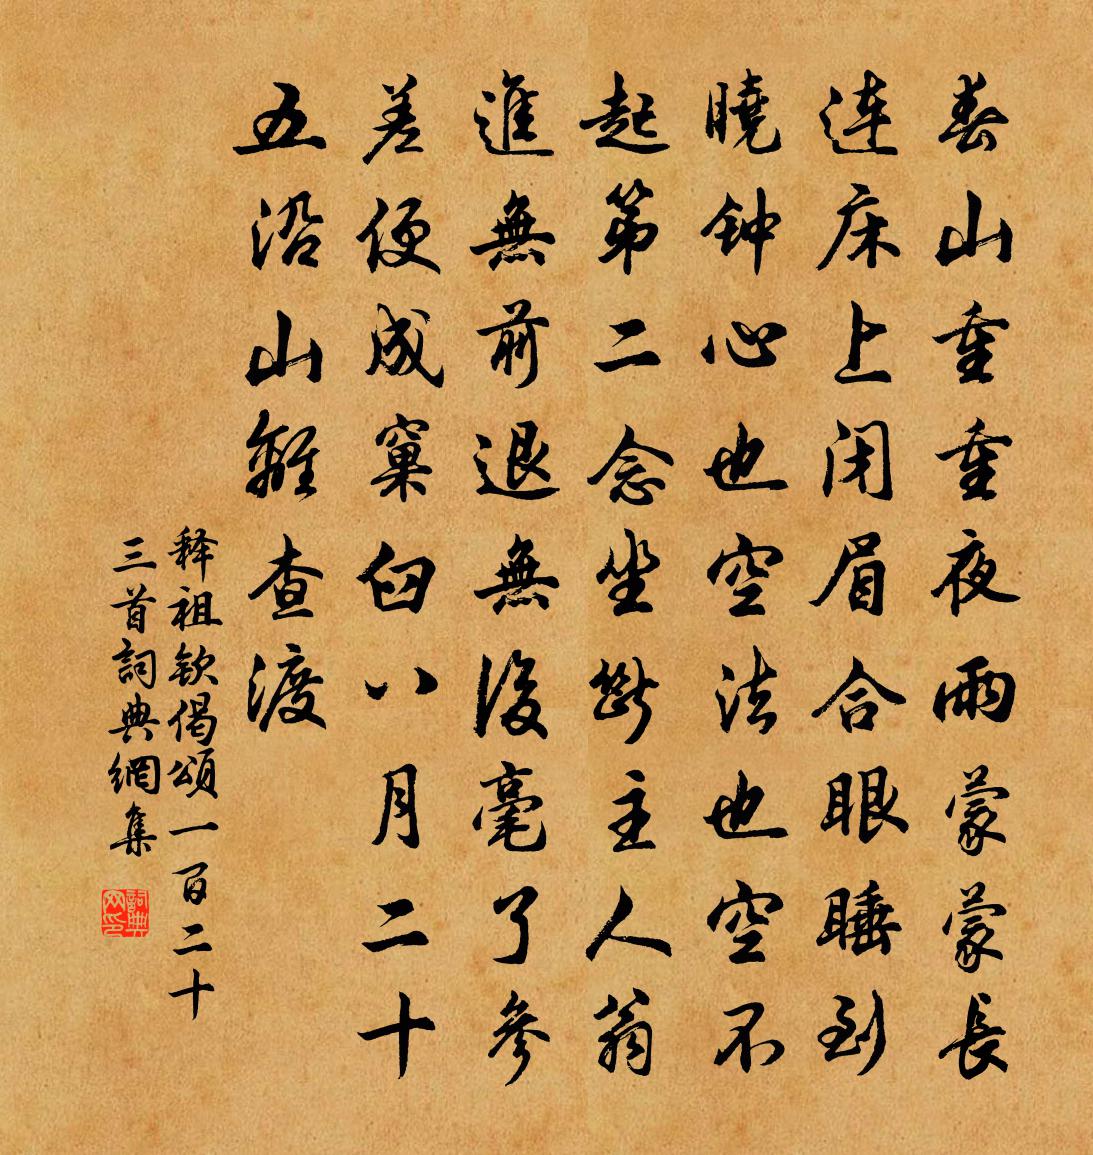 春山重重夜雨蒙蒙長
連床上闭眉合眼睡到
曉钟心也空法也空不
起第二念坐斷主人翁
進無前退無後毫了參
差便成窠臼八月二十
五沿山離查渡
释祖钦偈頌一百二十
三首詞典網集
詞典网印